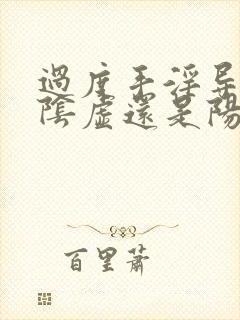 過度手淫导
陰虛還是陽
百里蕭